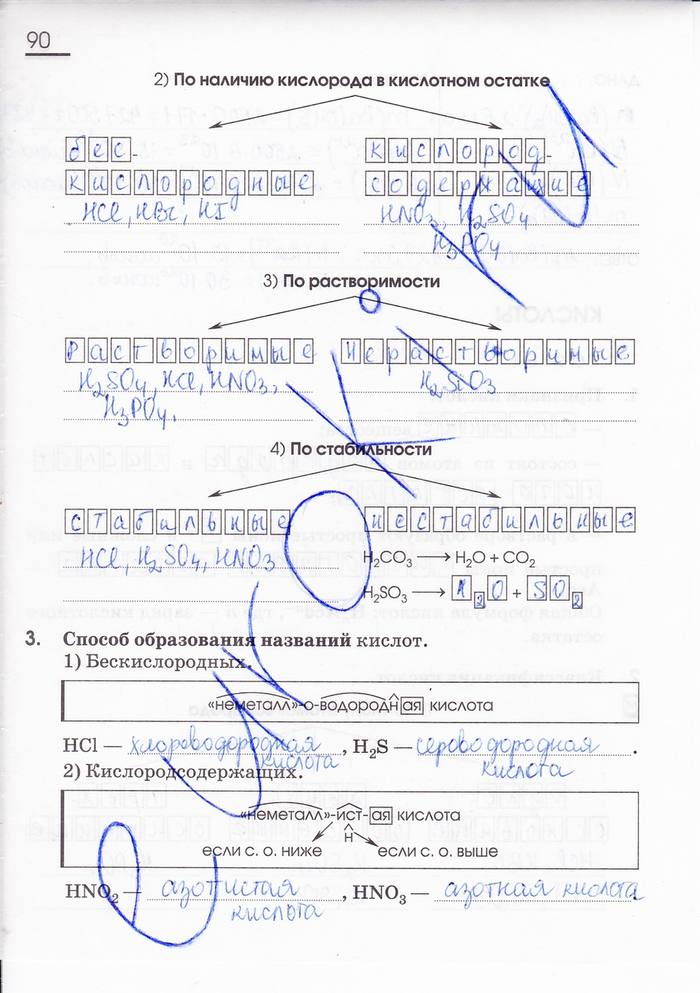 90
2) По наличию кислорода в кислотном остатке
бес-
кислородные
HCl, HBr, HI
кислород
содержащие
HNO3, H2SO4
H3PO4
3) По растворимости
Растворимые
H2SO4, HCl, HNO3,
H3PO4.
Нерастворимые
H2SiO3
4) По стабильности
стабильные
HCl, H2SO4, HNO3
нестабильные
H2CO3 → H2O + CO2
H2SO3 → H2O + SO2
3. Способ образования названий кислот.
1) Бескислородных.
«неметалл»-о-водородная кислота
HCl — хлороводородная кислота, H2S — сероводородная кислота.
2) Кислородсодержащих.
«неметалл»-ист-ая кислота
н
если с. о. ниже если с. о. выше
HNO2 — азотистая кислота, HNO3 — азотная кислота.